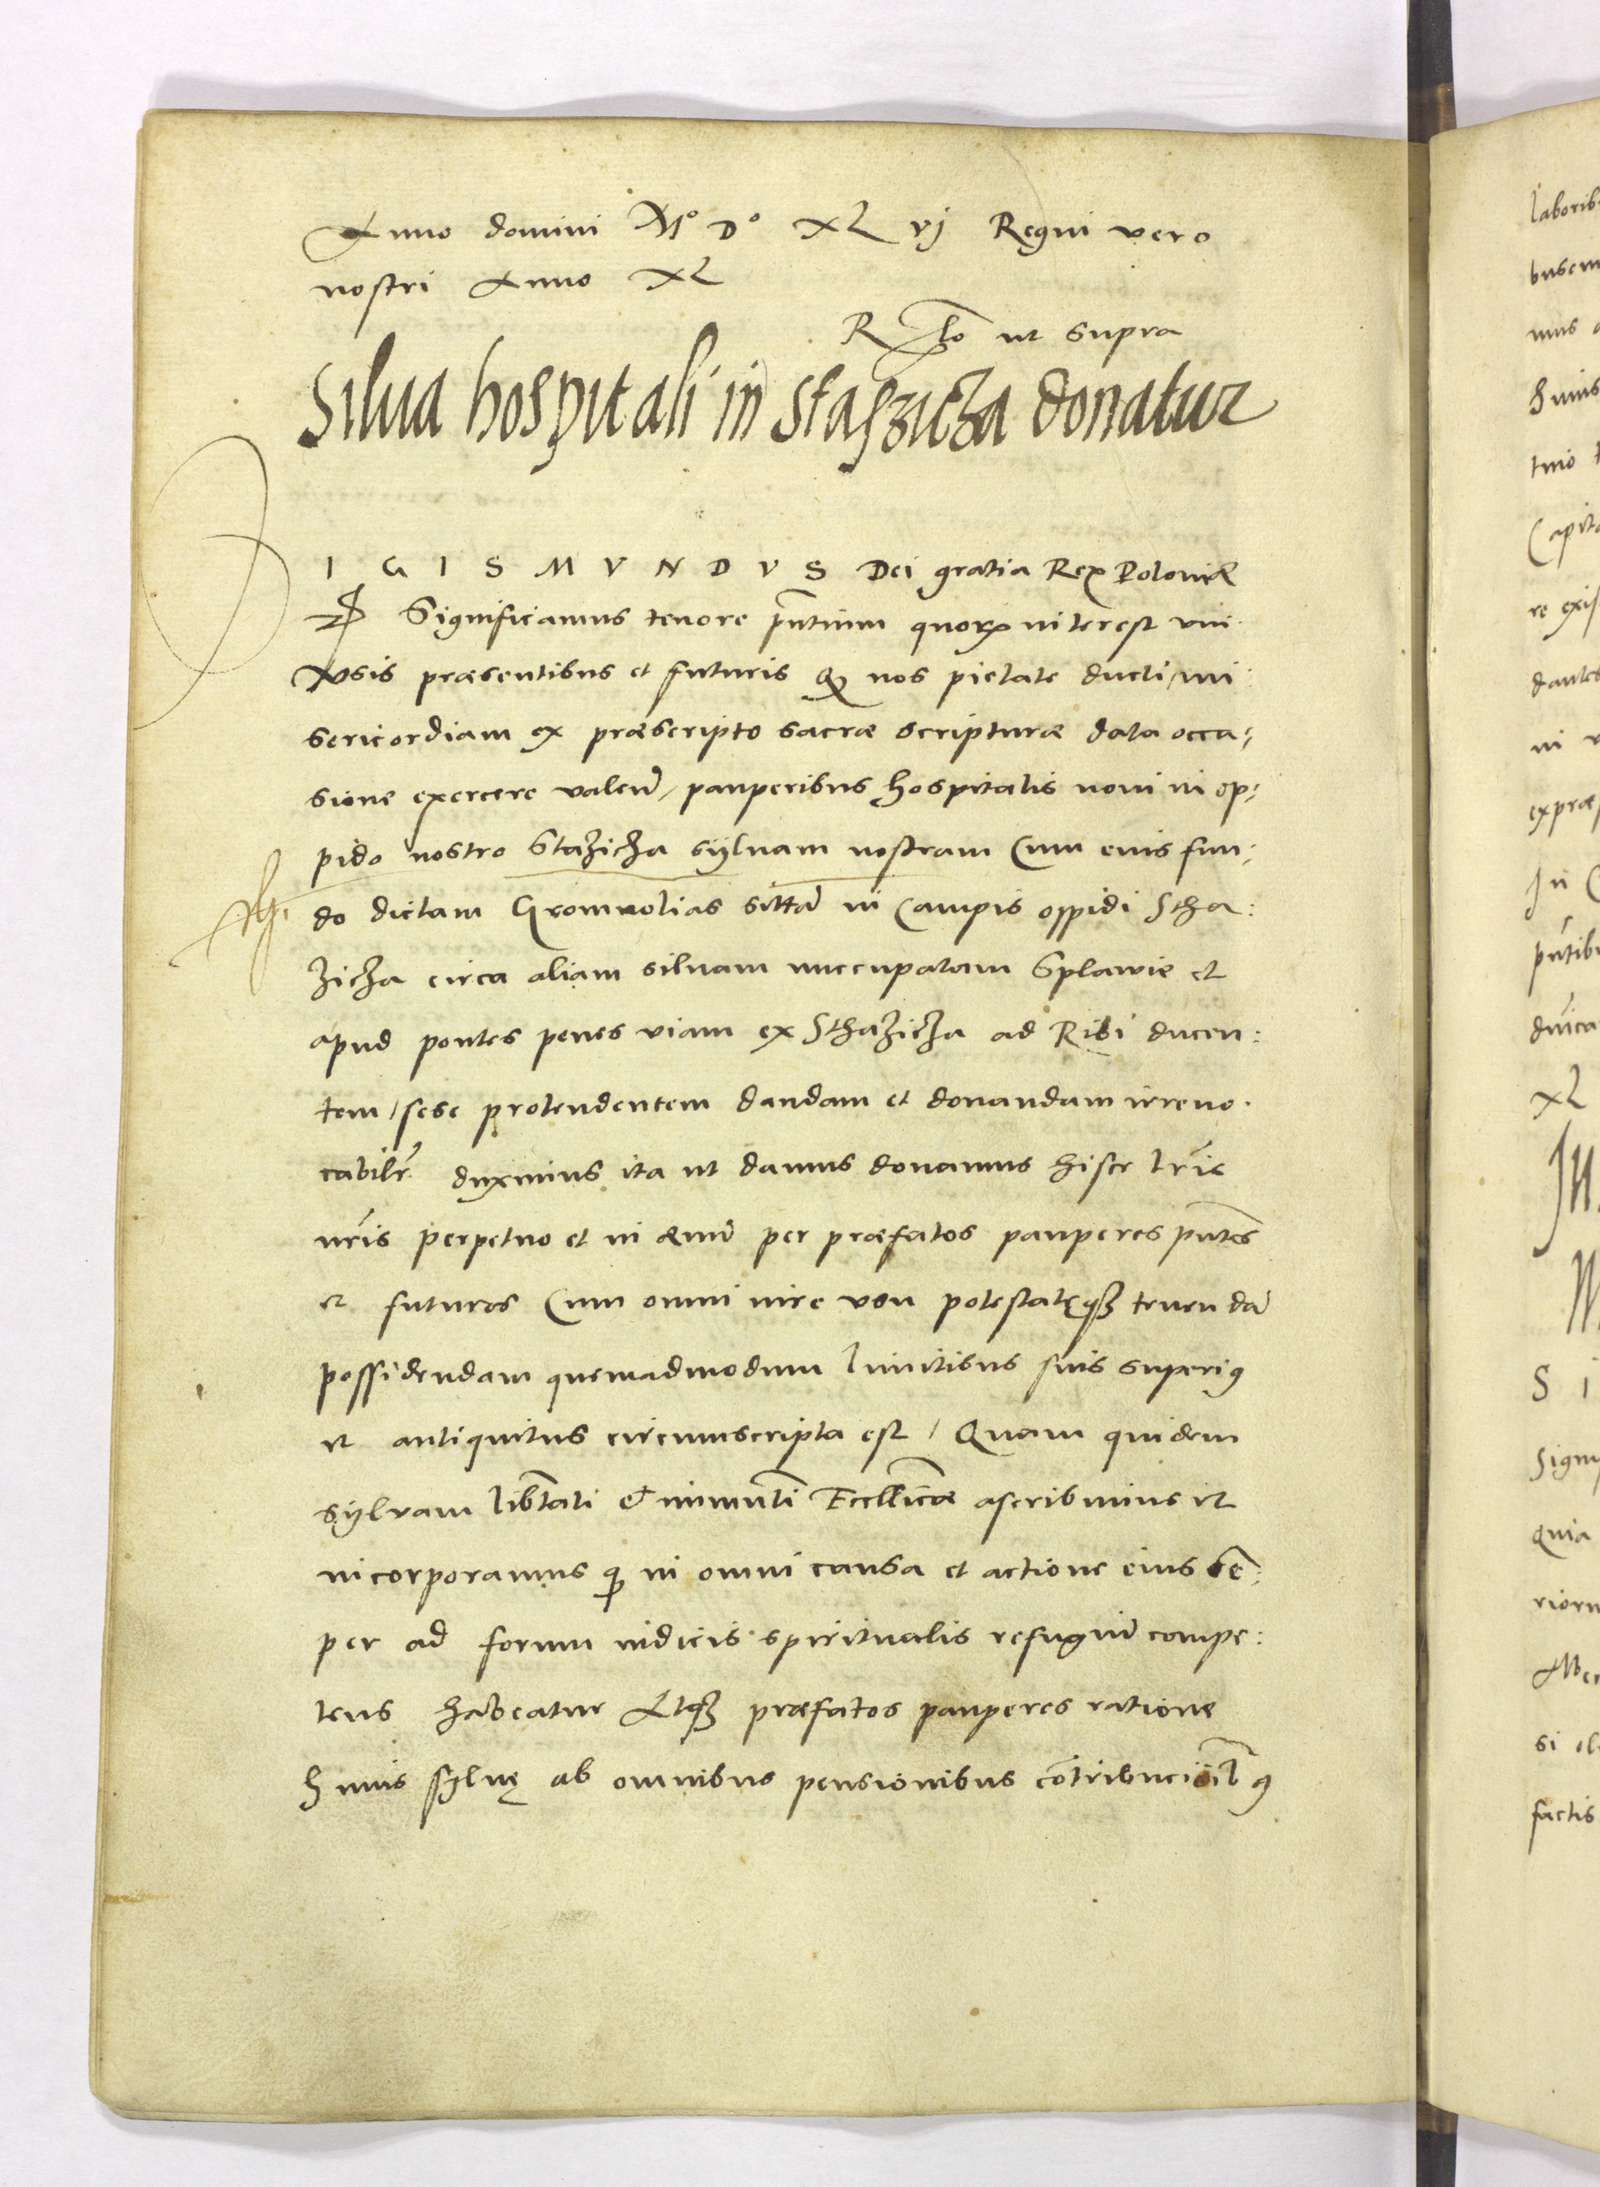 Anno domini Mº Dº XL vj Regni vero
nostri Anno XL
Rlo ut supra
Silua hospitali in Staszicza donatur
IGISMVNDVS Dei gratia Rex Poloniæ
Significamus tenore pntium quorum interest vni
versis præsentibus et futuris Q nos pietate ducti / mi
sericordiam ex præscripto sacræ scripturæ data occa:
sione exercere valen̄ / pauperibus hospitalis noui in op:
pido nostro Stazicza syluam nostram Cum eius fun:
do dictam Gromnolias sittā in Campis oppidi Stha:
zicza circa aliam siluam nuccupatam Splawie et
apud pontes penes viam ex Sthazicza ad Ribi ducen:
tem / sese protendentem dandam et donandam irreuo
cabilr̄ duximus ita ut damus donamus hisce lr̄is
nr̄is perpetuo et in æuū per præfatos pauperes pn̄tes
et futuros Cum omni iure usu potestatęqз tenendā
possidendam quemadmodum limitibus suis superiꝯ
et antiquitus circumscripta est / Quam quidem
sylvam lib̄tati et immun̄ti Eccl̄icæ ascribimus et
incorporamus ꝗ in omni causa et actione eius sē:
per ad forum iudicis spiritualis refugiū compe:
tens habeatur Atqз præfatos pauperes ratione
huius syluę ab omnibus pensionibus cōtribuciōib ꝯ
laborib
mus
tuo
Capita
re exis
dantes
expræ
In
pn̄tib
XL
S I
Signi
quia
riorn
factis